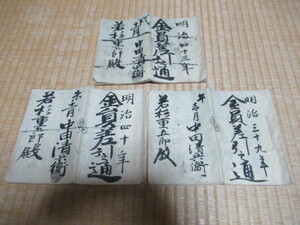 明治四十三年
金員差引通
戌一月 中田清兵衛
若杉重五郎殿
明治四十年
金員差引通
未一月 中田清兵衛
若杉重五郎殿
明治三十九年
金員差引通
午一月 中田清兵衛
若杉重五郎殿